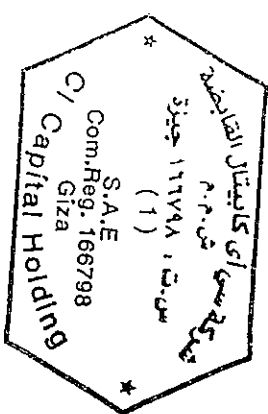 شركة سي أى كابيتال القابضة
ش.م.م
س.ت : ١٦٦٧٩٨ جيزة
( 1 )
S.A.E
Com.Reg. 166798
Giza
CI Capital Holding